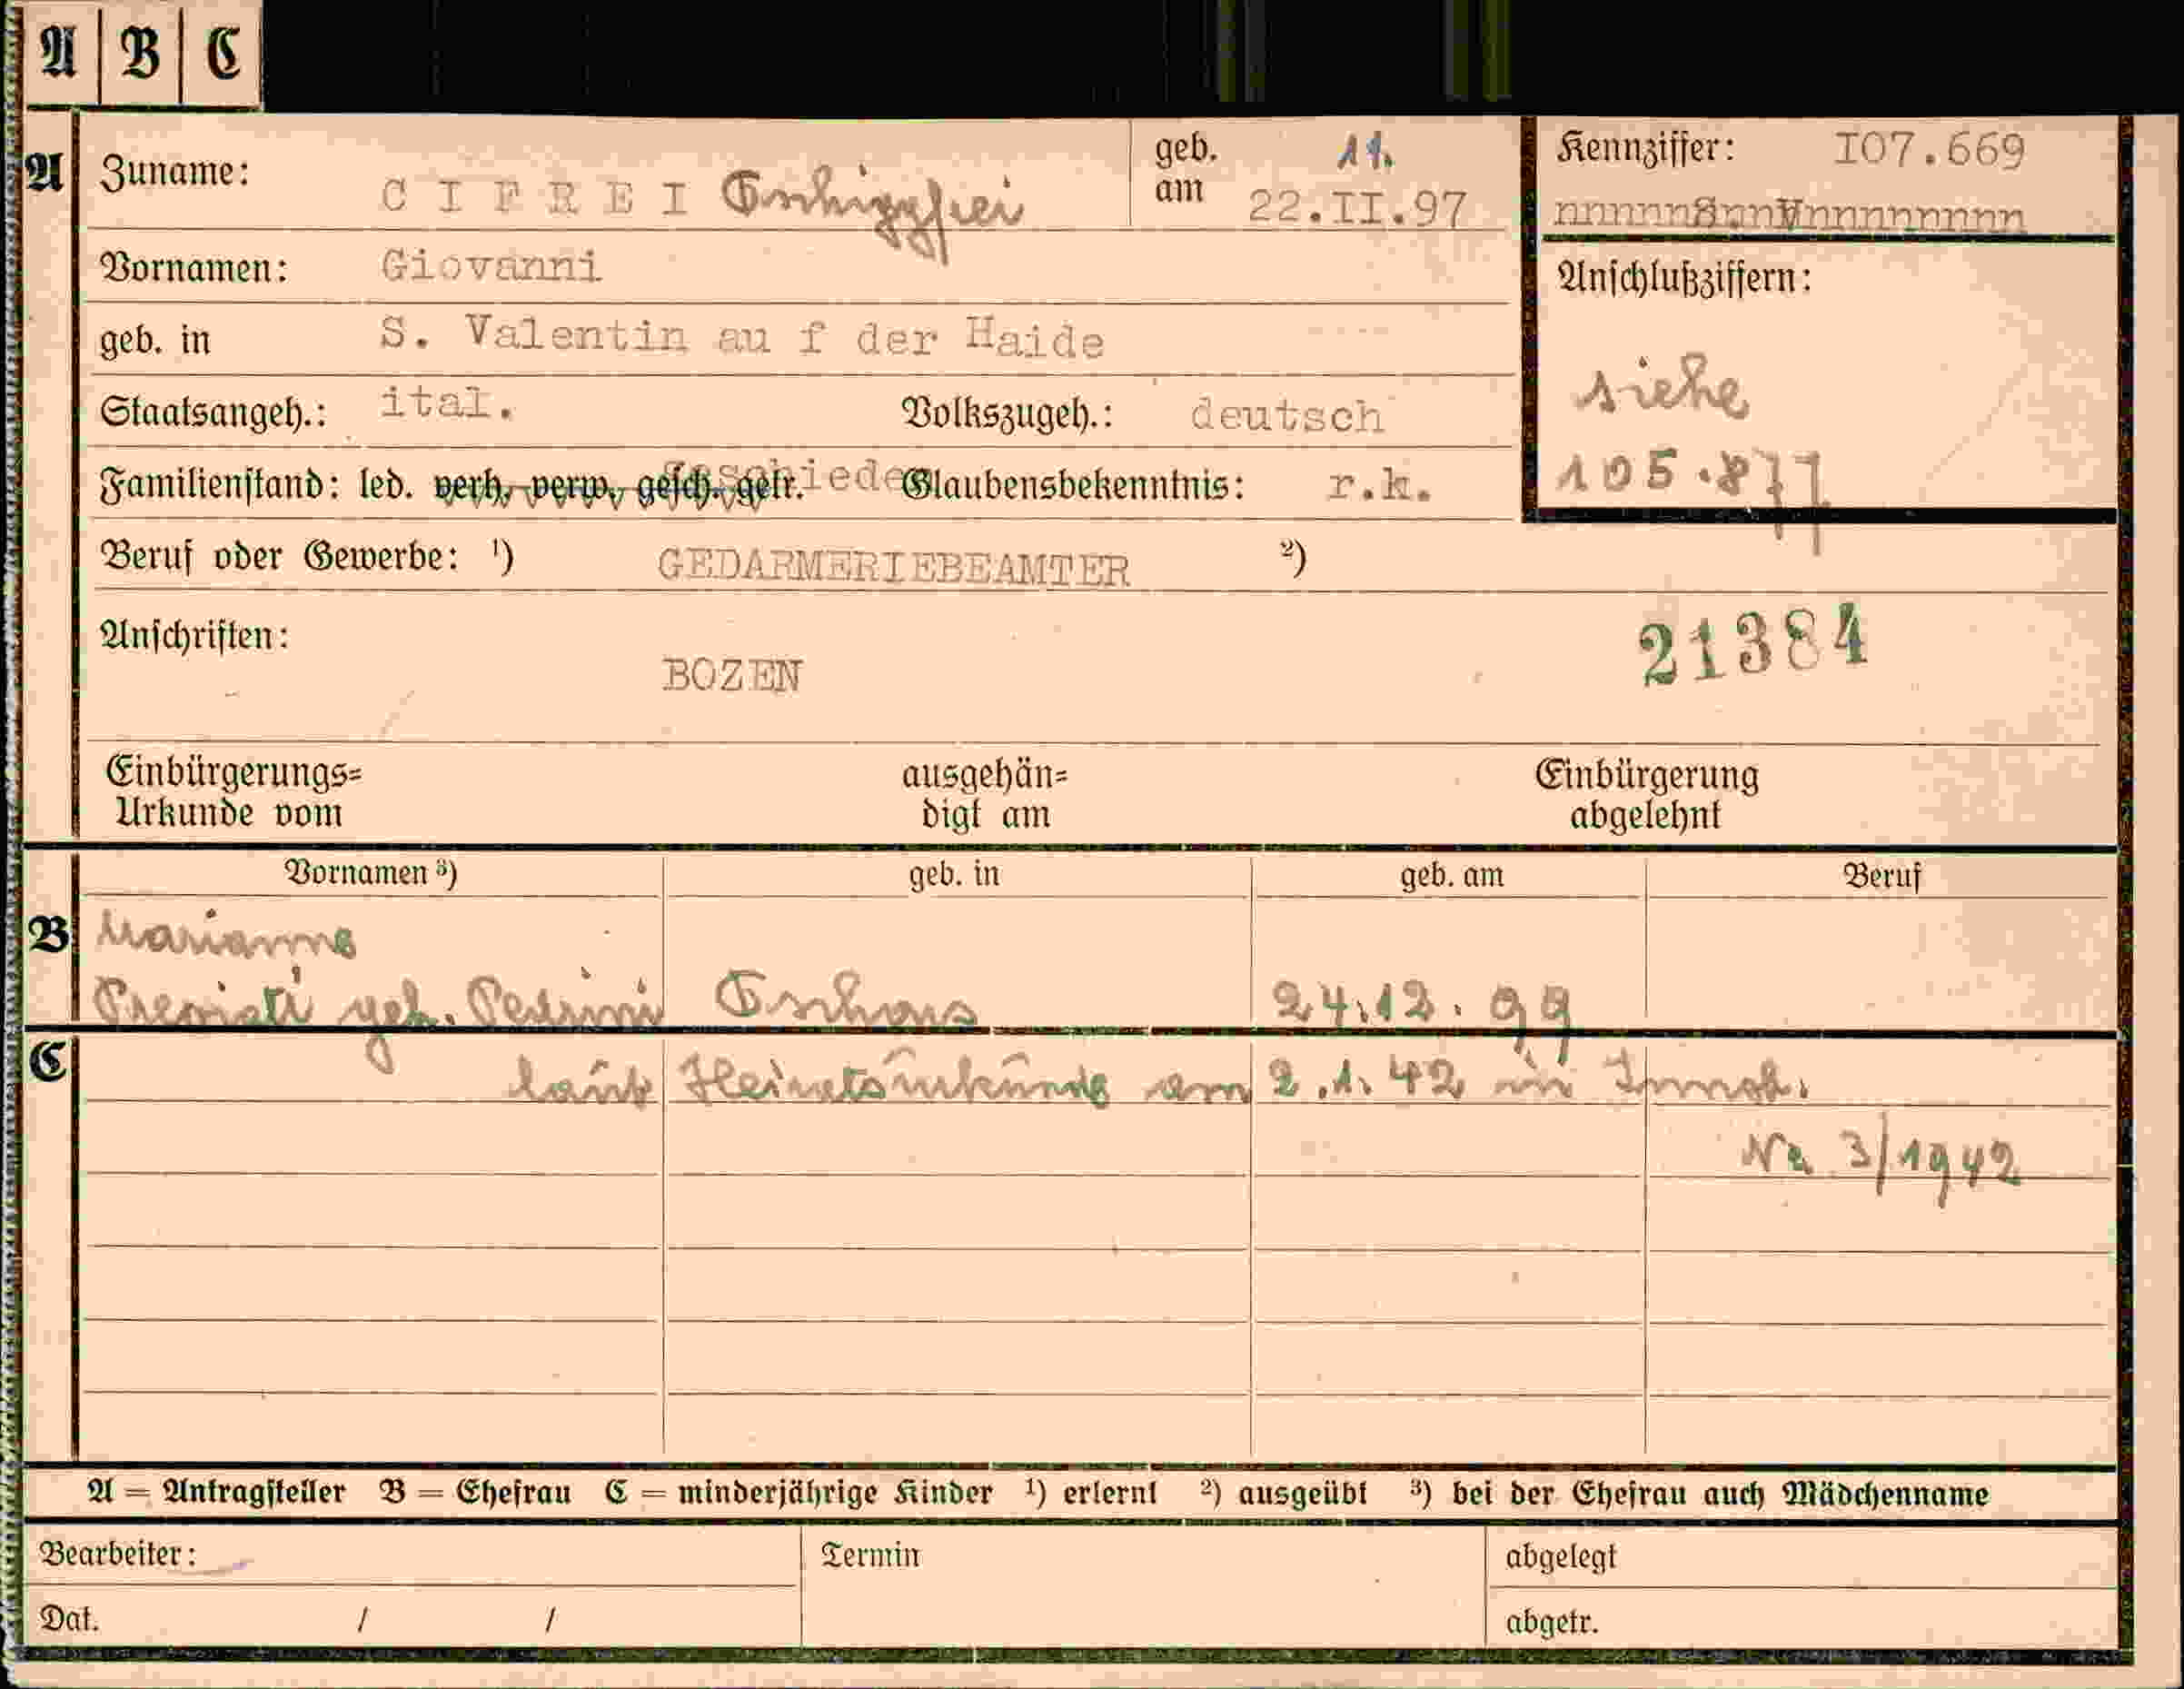 A B C
A Zuname: CIFREI Tschiggfrei geb. am 11. 22.II.97 Kennziffer: I07.669
Vornamen: Giovanni
Anschlußziffern:
geb. in S. Valentin au f der Haide
siehe
Staatsangeh.: ital. Volkszugeh.: deutsch
105.877
Familienstand: led. verh. verw. gesch. getr. geschieden Glaubensbekenntnis: r.k.
Beruf oder Gewerbe: ¹) GEDARMERIEBEAMTER ²)
Anschriften:
21384
BOZEN
Einbürgerungs= ausgehän= Einbürgerung
Urkunde vom digt am abgelehnt
Vornamen ³) geb. in geb. am Beruf
B Marianne
geb. Pedrini 24.12.99
C laut Heiratsurkunde am 2.1.42 in Innsb.
Nr. 3/1942
A = Antragsteller B = Ehefrau C = minderjährige Kinder ¹) erlernt ²) ausgeübt ³) bei der Ehefrau auch Mädchenname
Bearbeiter: Termin abgelegt
Dat. / / abgetr.